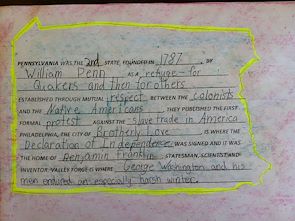 PENNSYLVANIA WAS THE 2nd STATE, FOUNDED IN 1787 BY
William Penn AS A refuge for
Quakers and then for others
ESTABLISHED THROUGH MUTUAL respect BETWEEN THE colonists
AND THE Native Americans. THEY PUBLISHED THE FIRST
FORMAL protest AGAINST THE slave trade in America
PHILADELPHIA, THE CITY OF Brotherly Love IS WHERE THE
Declaration of Independence WAS SIGNED AND IT WAS
THE HOME OF Benjamin Franklin STATESMAN, SCIENTIST AND
INVENTOR. VALLEY FORGE IS WHERE George Washington and his
men endured an especially harsh winter.